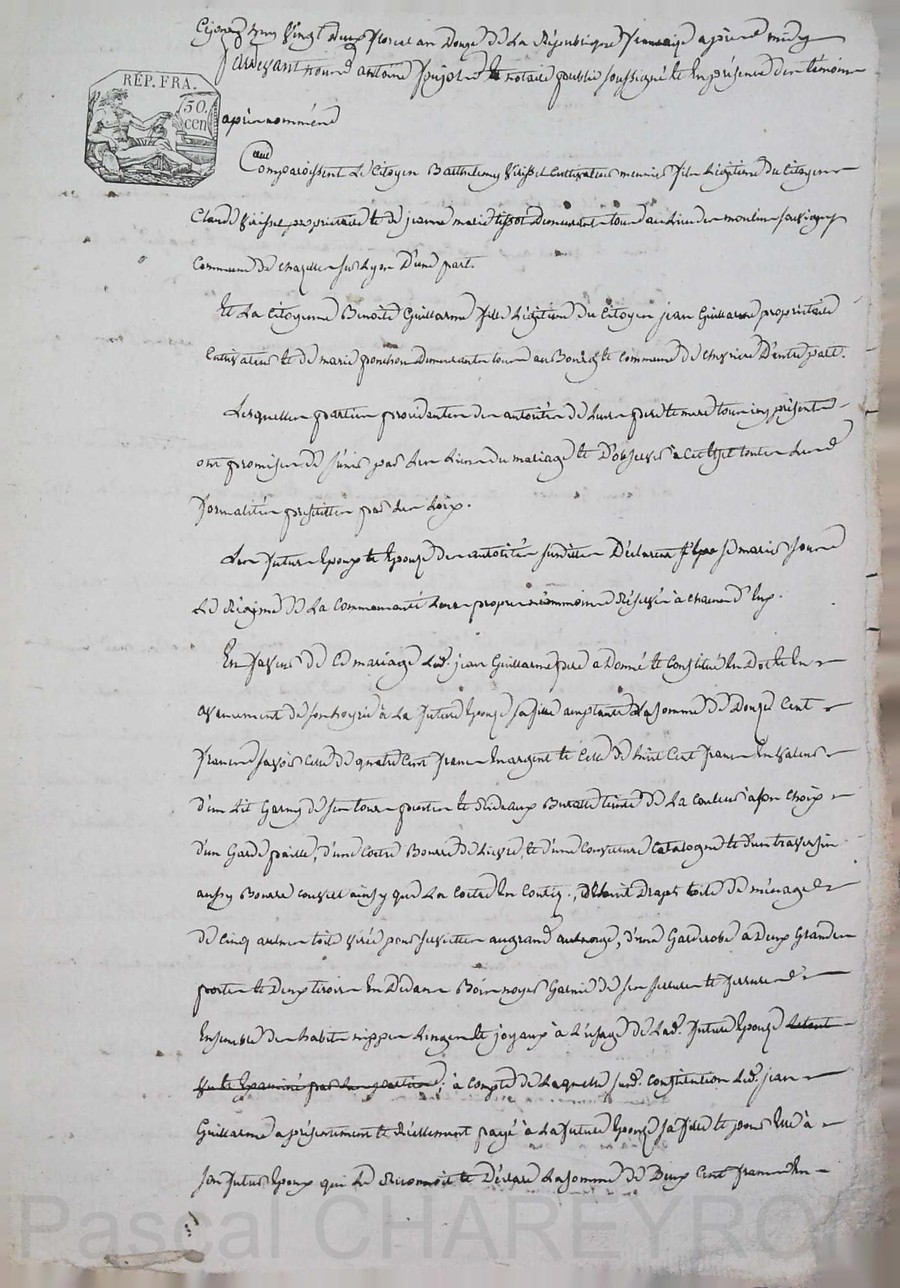 Cejourd'huy Vingt deux floreal an Douze de La République française apres midy
Pardevant nous antoine notaire public soussigné et En présence des témoins
RÉP. FRA.
50.
cen
après nommés
Comparoissent Le Citoyen Barthelemy cultivateur meunier fils Légitime du Citoyen
Claude propriétaire et de jeanne marie tissot Demeurants tous au Lieu des moulins
Commune de chazelles sur Lyon D'une part.
Et La Citoyenne Benoite Guillarme fille Légitime du Citoyen jean Guillarme propriétaire
Cultivateur et de marie ponchon Demeurants tous au Bourg et commune de D'autre part.
Lesquelles parties procédantes des autorités de Leurs pere et mere tous icy présents
ont promis de s'unir par Les Liens du mariage et D'observer à cet effet toutes Les
formalités prescrittes par Les Loix.
Les futurs Epoux et Epouze des autorités susdittes Déclarent se marier sous
Le Régime de La Communauté Leurs propres néanmoins Réservés à chacun d'Eux.
En faveur de Ce mariage Led. jean Guillarme pere a Donné et Constitué En Dot et En
avancement de son hoyrie à La future Epouze sa fille acceptante La somme de Douze Cent
francs savoir Celle de quatre Cent francs En argent et Celle de huit Cent francs En valeur
d'un Lit Garny de son tour portier et Rideaux teinte de La couleur à son choix
d'un Garde paille, d'une Coetre Bourré de Lievre, et d'une Couverture Catalogne et d'un traversin
aussy Bourré couvert ainsy que La coetre En Coutis, Draps toile de ménage
de Cinq aulnes toile pour serviettes au grand aulnage, d'une Garderobe à Deux Grandes
portes et Deux tiroirs En Dedans Bois noyer Garnie de ses serrures et ferrures
Ensemble des habits nippes Linges et joyaux à L'usage de Lad. future Epouze Le tout
vu et Examiné par Les parties; à compte de Laquelle susd. Constitution Led. jean
Guillarme a présentement et Réellement payé à La future Epouze sa fille et pour Elle à
son futur Epoux qui Le Reconnoit et Déclare La somme de Deux Cent francs En
Pascal CHAREYRO